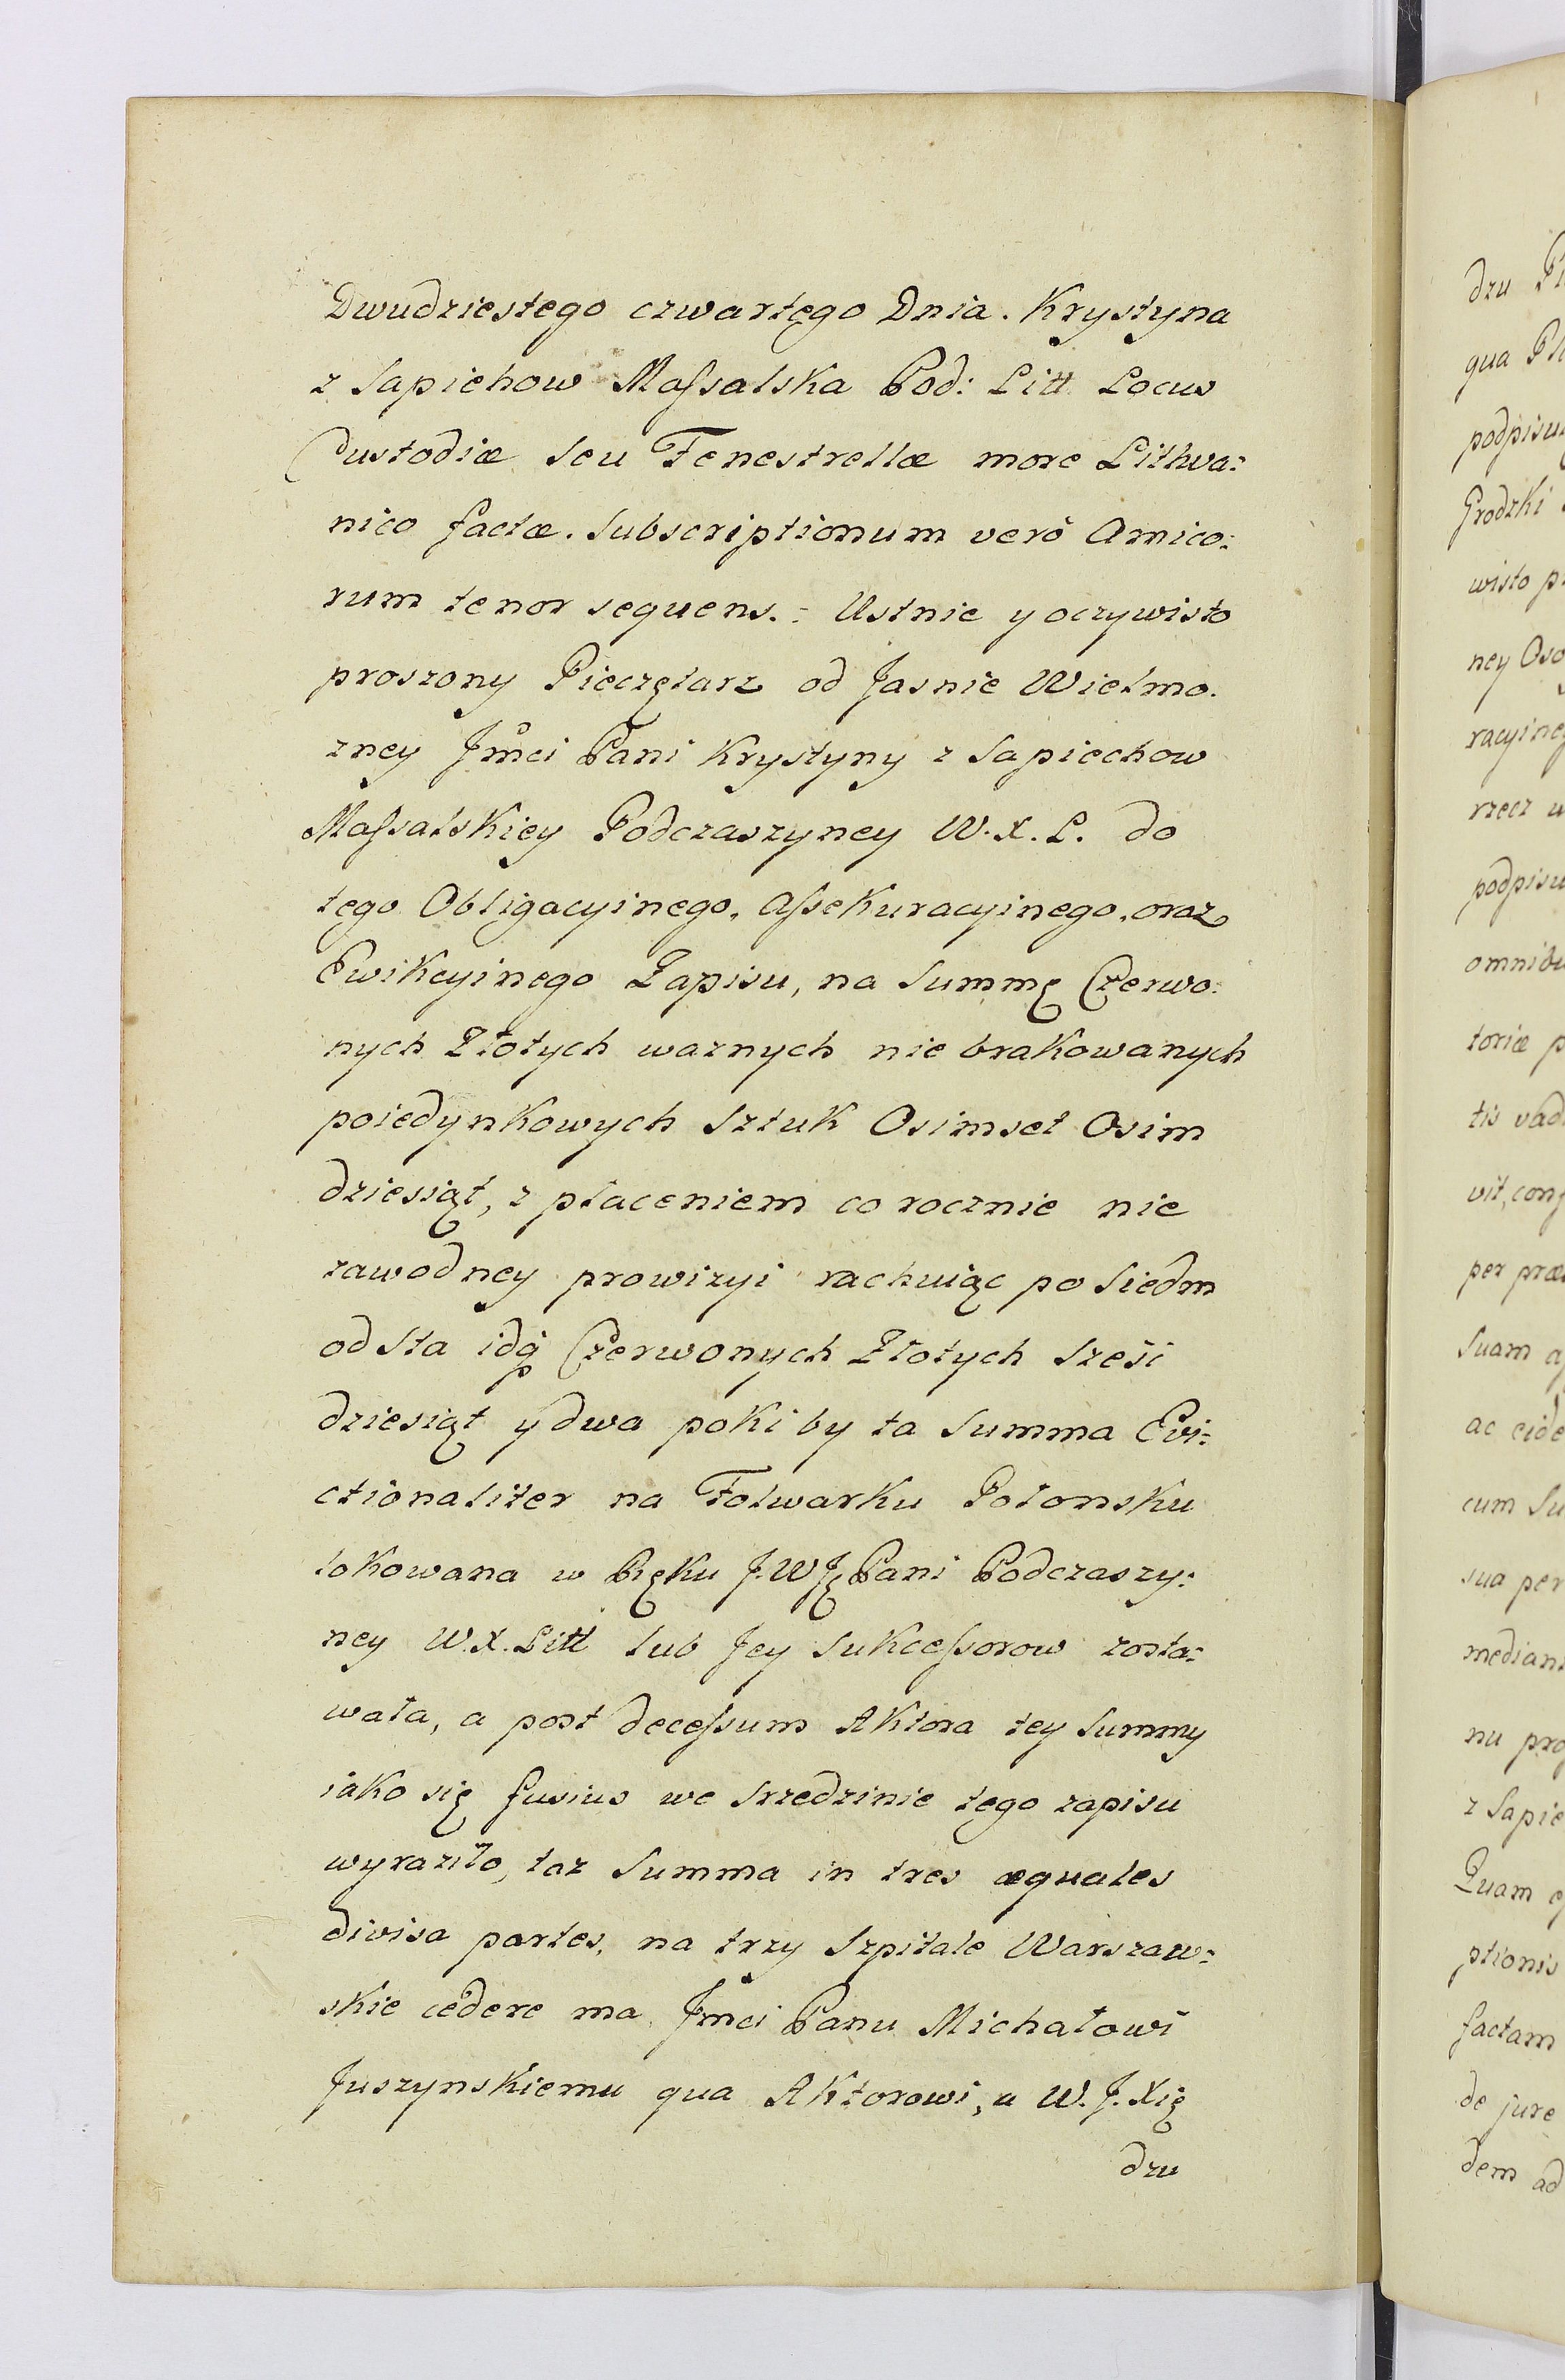 Dwudziestego czwartego Dnia. Krystyna
z Sapiehow Maſsalska Pod: Litt. Locus
Custodiæ seu Fenestrellæ more Lithva:
nico factæ. Subscriptionum verò Amico:
rum tenor sequens.: Ustnie y oczywisto
proszony Pieczętarz od Jasnie Wielmo.
zney Jmci Pani Krystyny z Sapiechow
Maſsalskiey Podczaszyney W.X.L. do
tego Obligacyinego, Aſsekuracyinego, oraz
Ewikcyinego Zapisu, na Summę Czerwo:
nych Złotych waznych nie brakowanych
poiedynkowych Sztuk Osimset Osim
dziesiąt, z płaceniem co rocznie nie
zawodney prowizyi rachuiąc po Siedm
od Sta idq Czerwonych Złotych Sześi
dziesiąt y dwa poki by ta Summa Evi:
ctionaliter na Folwarku Połonsku
lokowana w Ręku J.W.J. Pani Podczaszy:
ney W.X.Litt lub Jey Sukceſsorow zosta:
wała, a post deceſsum Aktora tey Summy
iako się fusius we Srzedzinie tego zapisu
wyraziło, taz Summa in tres æquales
divisa partes, na trzy Szpitale Warszaw:
skie cedere ma. Jmci Panu Michałowi
Juszynskiemu qua Aktorowi, a W.J.Xię
dzu
dzu
qua
podpisu
Grodzki
wisto p
ney Oso
racyineg
rzecz w
podpisu
omnibu
toriæ p
tis vad
vit, conf
per præ
Suam a
ac eide
cum Su
sua per
mediant
nu pro
z Sapie
Quam
ptionis
factam
de jure
dem ad